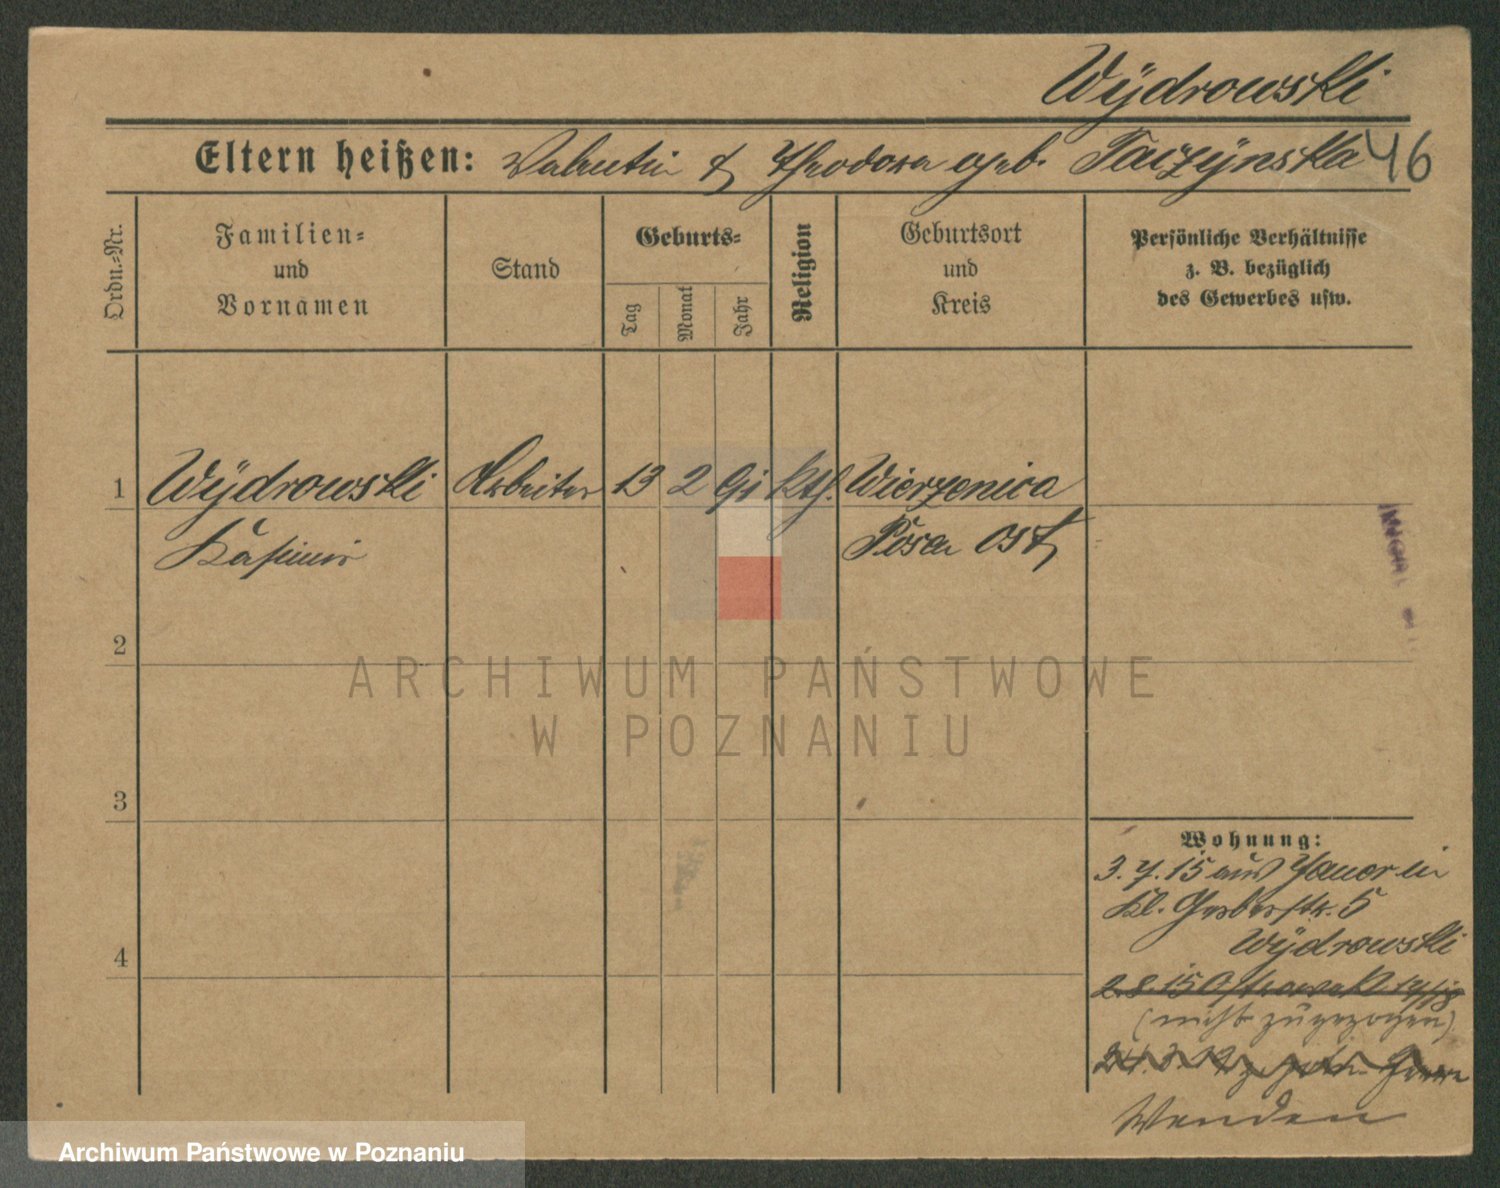 Wÿdrowski
Eltern heißen: Valentin & Theodora geb. Taczÿnska 46
Ordn.-Nr.
Familien-
und
Vornamen
Stand
Geburts-
Tag
Monat
Jahr
Religion
Geburtsort
und
Kreis
Persönliche Verhältnisse
z. B. bezüglich
des Gewerbes usw.
1 Wÿdrowski Arbeiter 13 2 kth. Wierzenica
Kasimir Posen Ost
2
3
4
Wohnung:
3. 7. 15 aus Janer in
Kl. Gerberstr. 5
Wÿdrowski
2. 8. 15 Ostrowek
(nicht zugezogen)
Wenden
ARCHIWUM PAŃSTWOWE
W POZNANIU
Archiwum Państwowe w Poznaniu